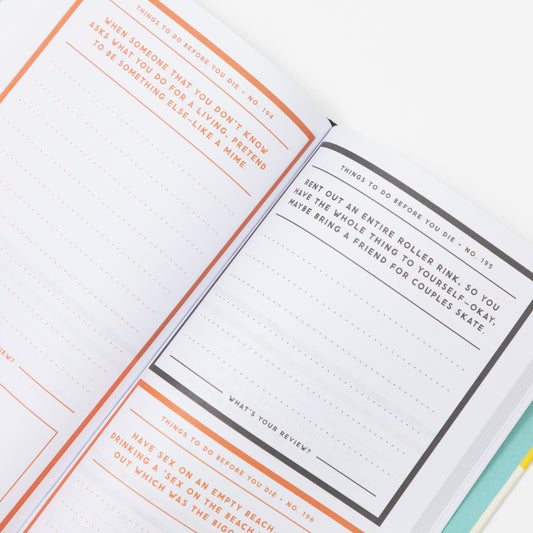 THINGS TO DO BEFORE YOU DIE • NO. 194
WHEN SOMEONE THAT YOU DON'T KNOW
ASKS WHAT YOU DO FOR A LIVING, PRETEND
TO BE SOMETHING ELSE–LIKE A MIME.
REVIEW?
THINGS TO DO BEFORE YOU DIE • NO. 195
RENT OUT AN ENTIRE ROLLER RINK, SO YOU
HAVE THE WHOLE THING TO YOURSELF–OKAY,
MAYBE BRING A FRIEND FOR COUPLES SKATE.
WHAT'S YOUR REVIEW?
THINGS TO DO BEFORE YOU DIE • NO. 196
HAVE SEX ON AN EMPTY BEACH
DRINKING A 'SEX ON THE BEACH
OUT WHICH WAS THE